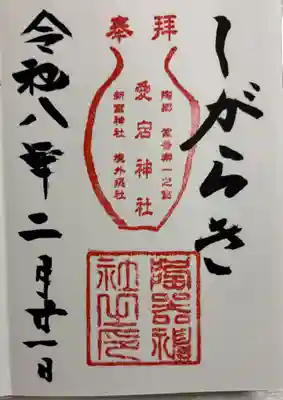 しがらき
奉拝
愛宕神社
新宮神社 境外
陶器神
社之印
令和八年二月廿一日